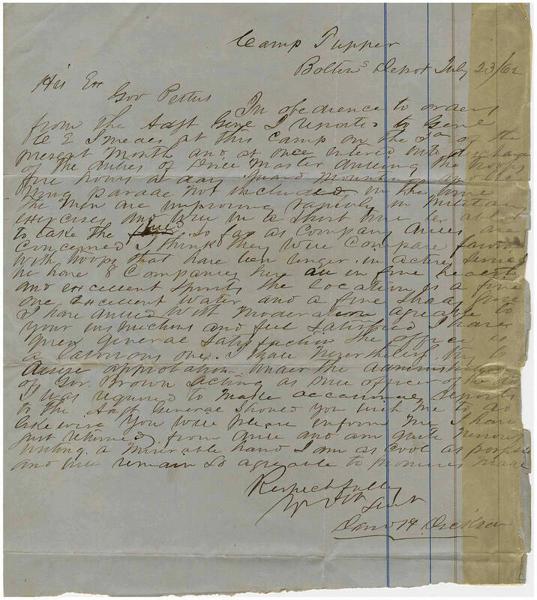 Camp Tupper
Bolton's Depot July 23/62
His Ex
Gov Pettus In obedience to orders
from the Adjt Genl I reported to Genl
at this Camp on the 3rd of the
present month and at once entered into discharge
of the duties of Drill Master
five hours a day Guard Mounting and
Dress Parade not included in the time
the men are improving rapidly in military
exercises and will in a short time be able
to take the field so far as Company drills are
concerned I think they will compare favorably
with troops that have been longer in active service
we have 8 Companies here all in fine health
and excellent Spirits the location is a fine
one excellent water and a fine Shady place
I have with moderation agreeable to
your instructions and feel Satisfied I have
given General Satisfaction the office is
a laborious one. I shall nevertheless
approbation under the administration
of Gov. Brown acting as Drill officer of the
I was required to make reports
to the Adjt General Should you wish me to do
likewise You will please inform me I have
just returned from drill and am quite nervous
writing a miserable hand I am as cool as possible
and will remain so agreeable to promises made
Respectfully